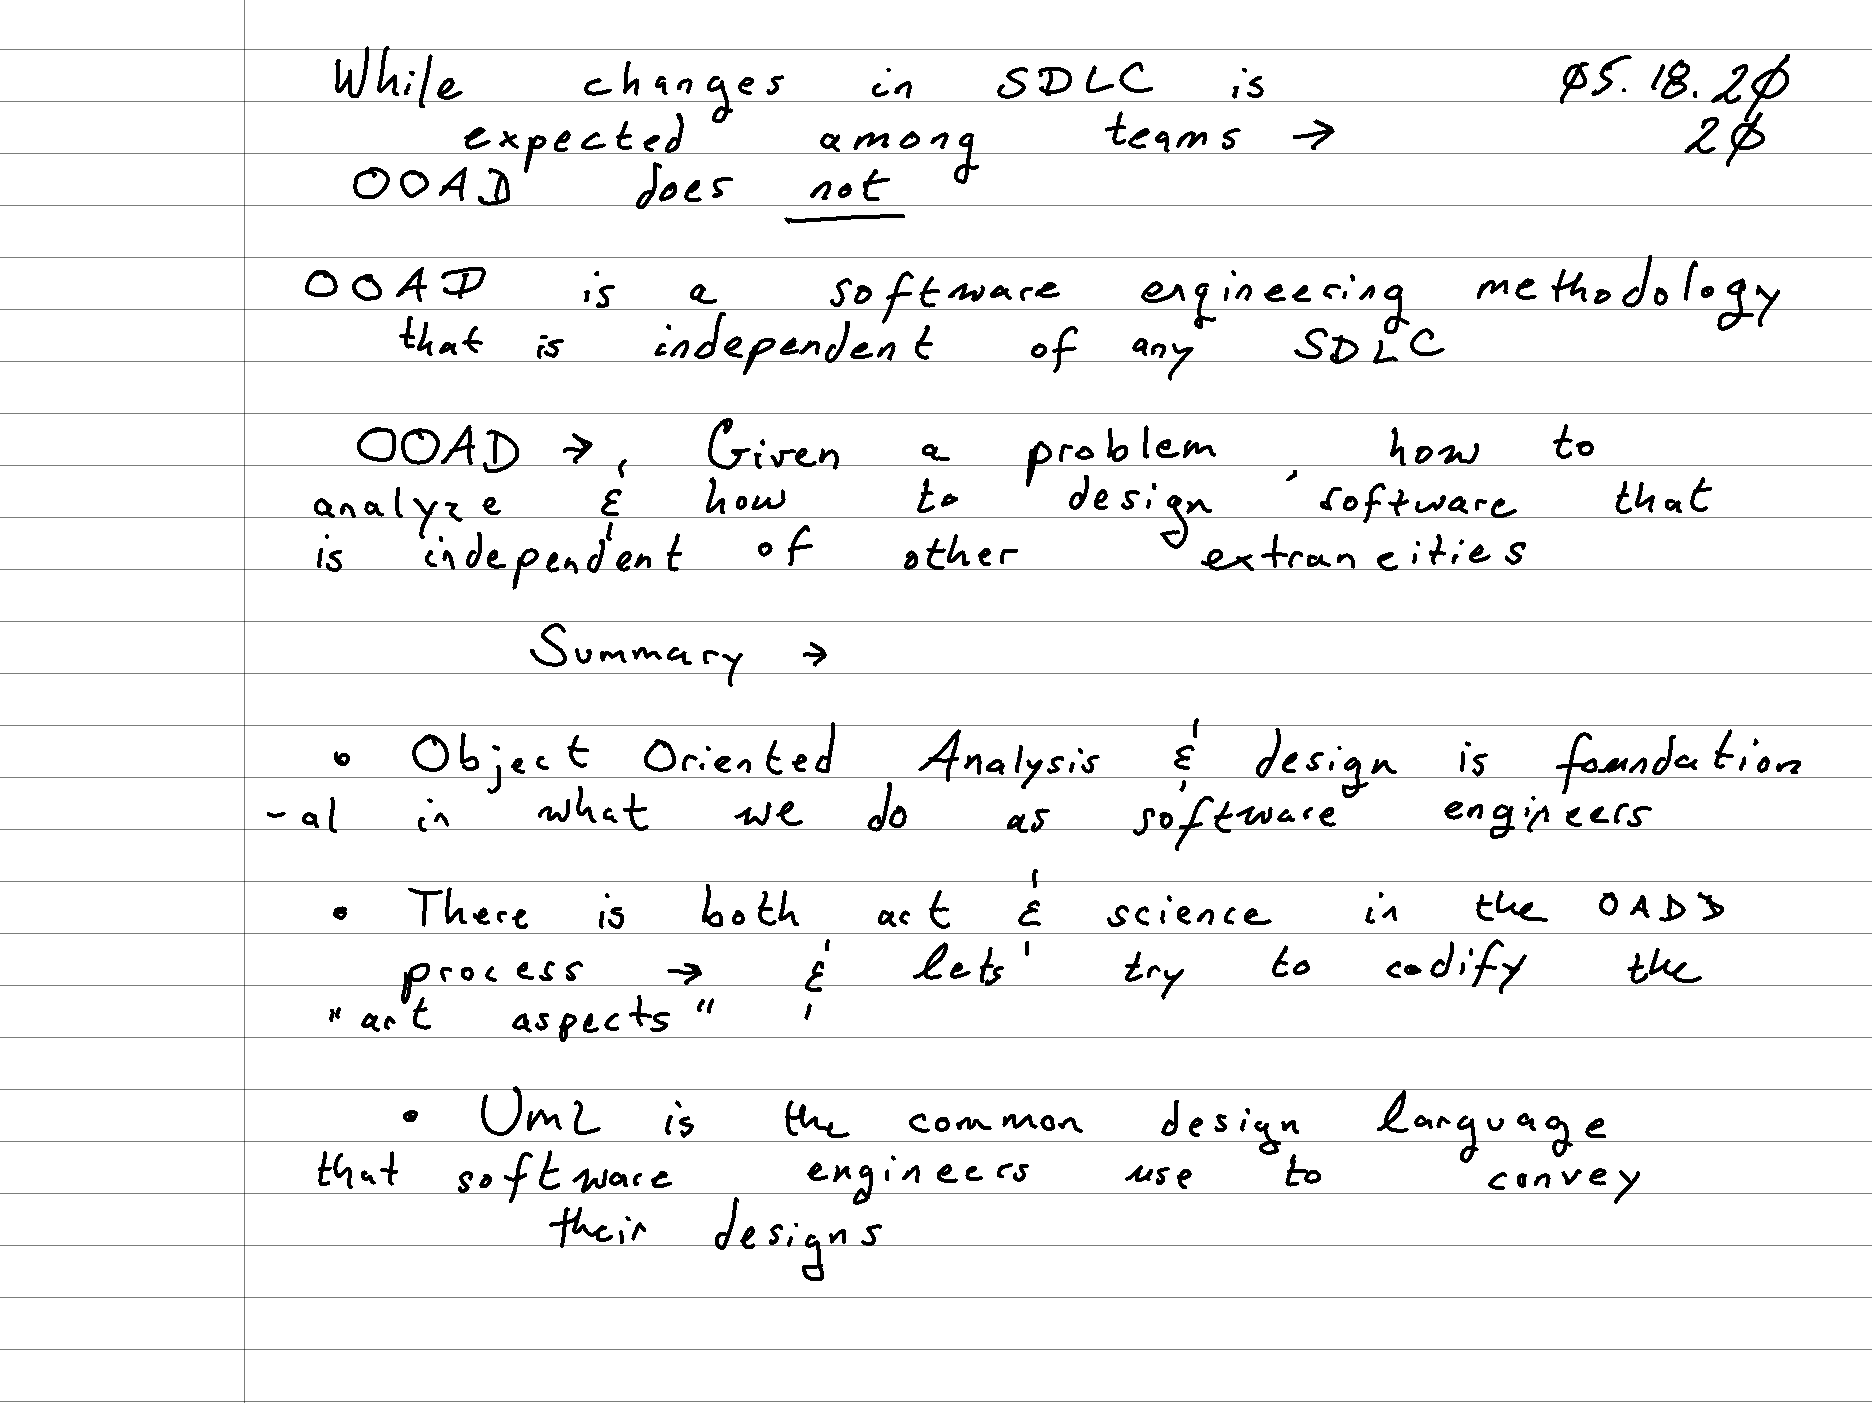 While changes in SDLC is 05.18.20
expected among teams → 20
OOAD does not
OOAD is a software engineering methodology
that is independent of any SDLC
OOAD → Given a problem, how to
analyze & how to design software that
is independent of other extraneities
Summary →
• Object Oriented Analysis & design is foundation
-al in what we do as software engineers
• There is both art & science in the OADD
process → & lets' try to codify the
"art aspects"
• UmL is the common design language
that software engineers use to convey
their designs